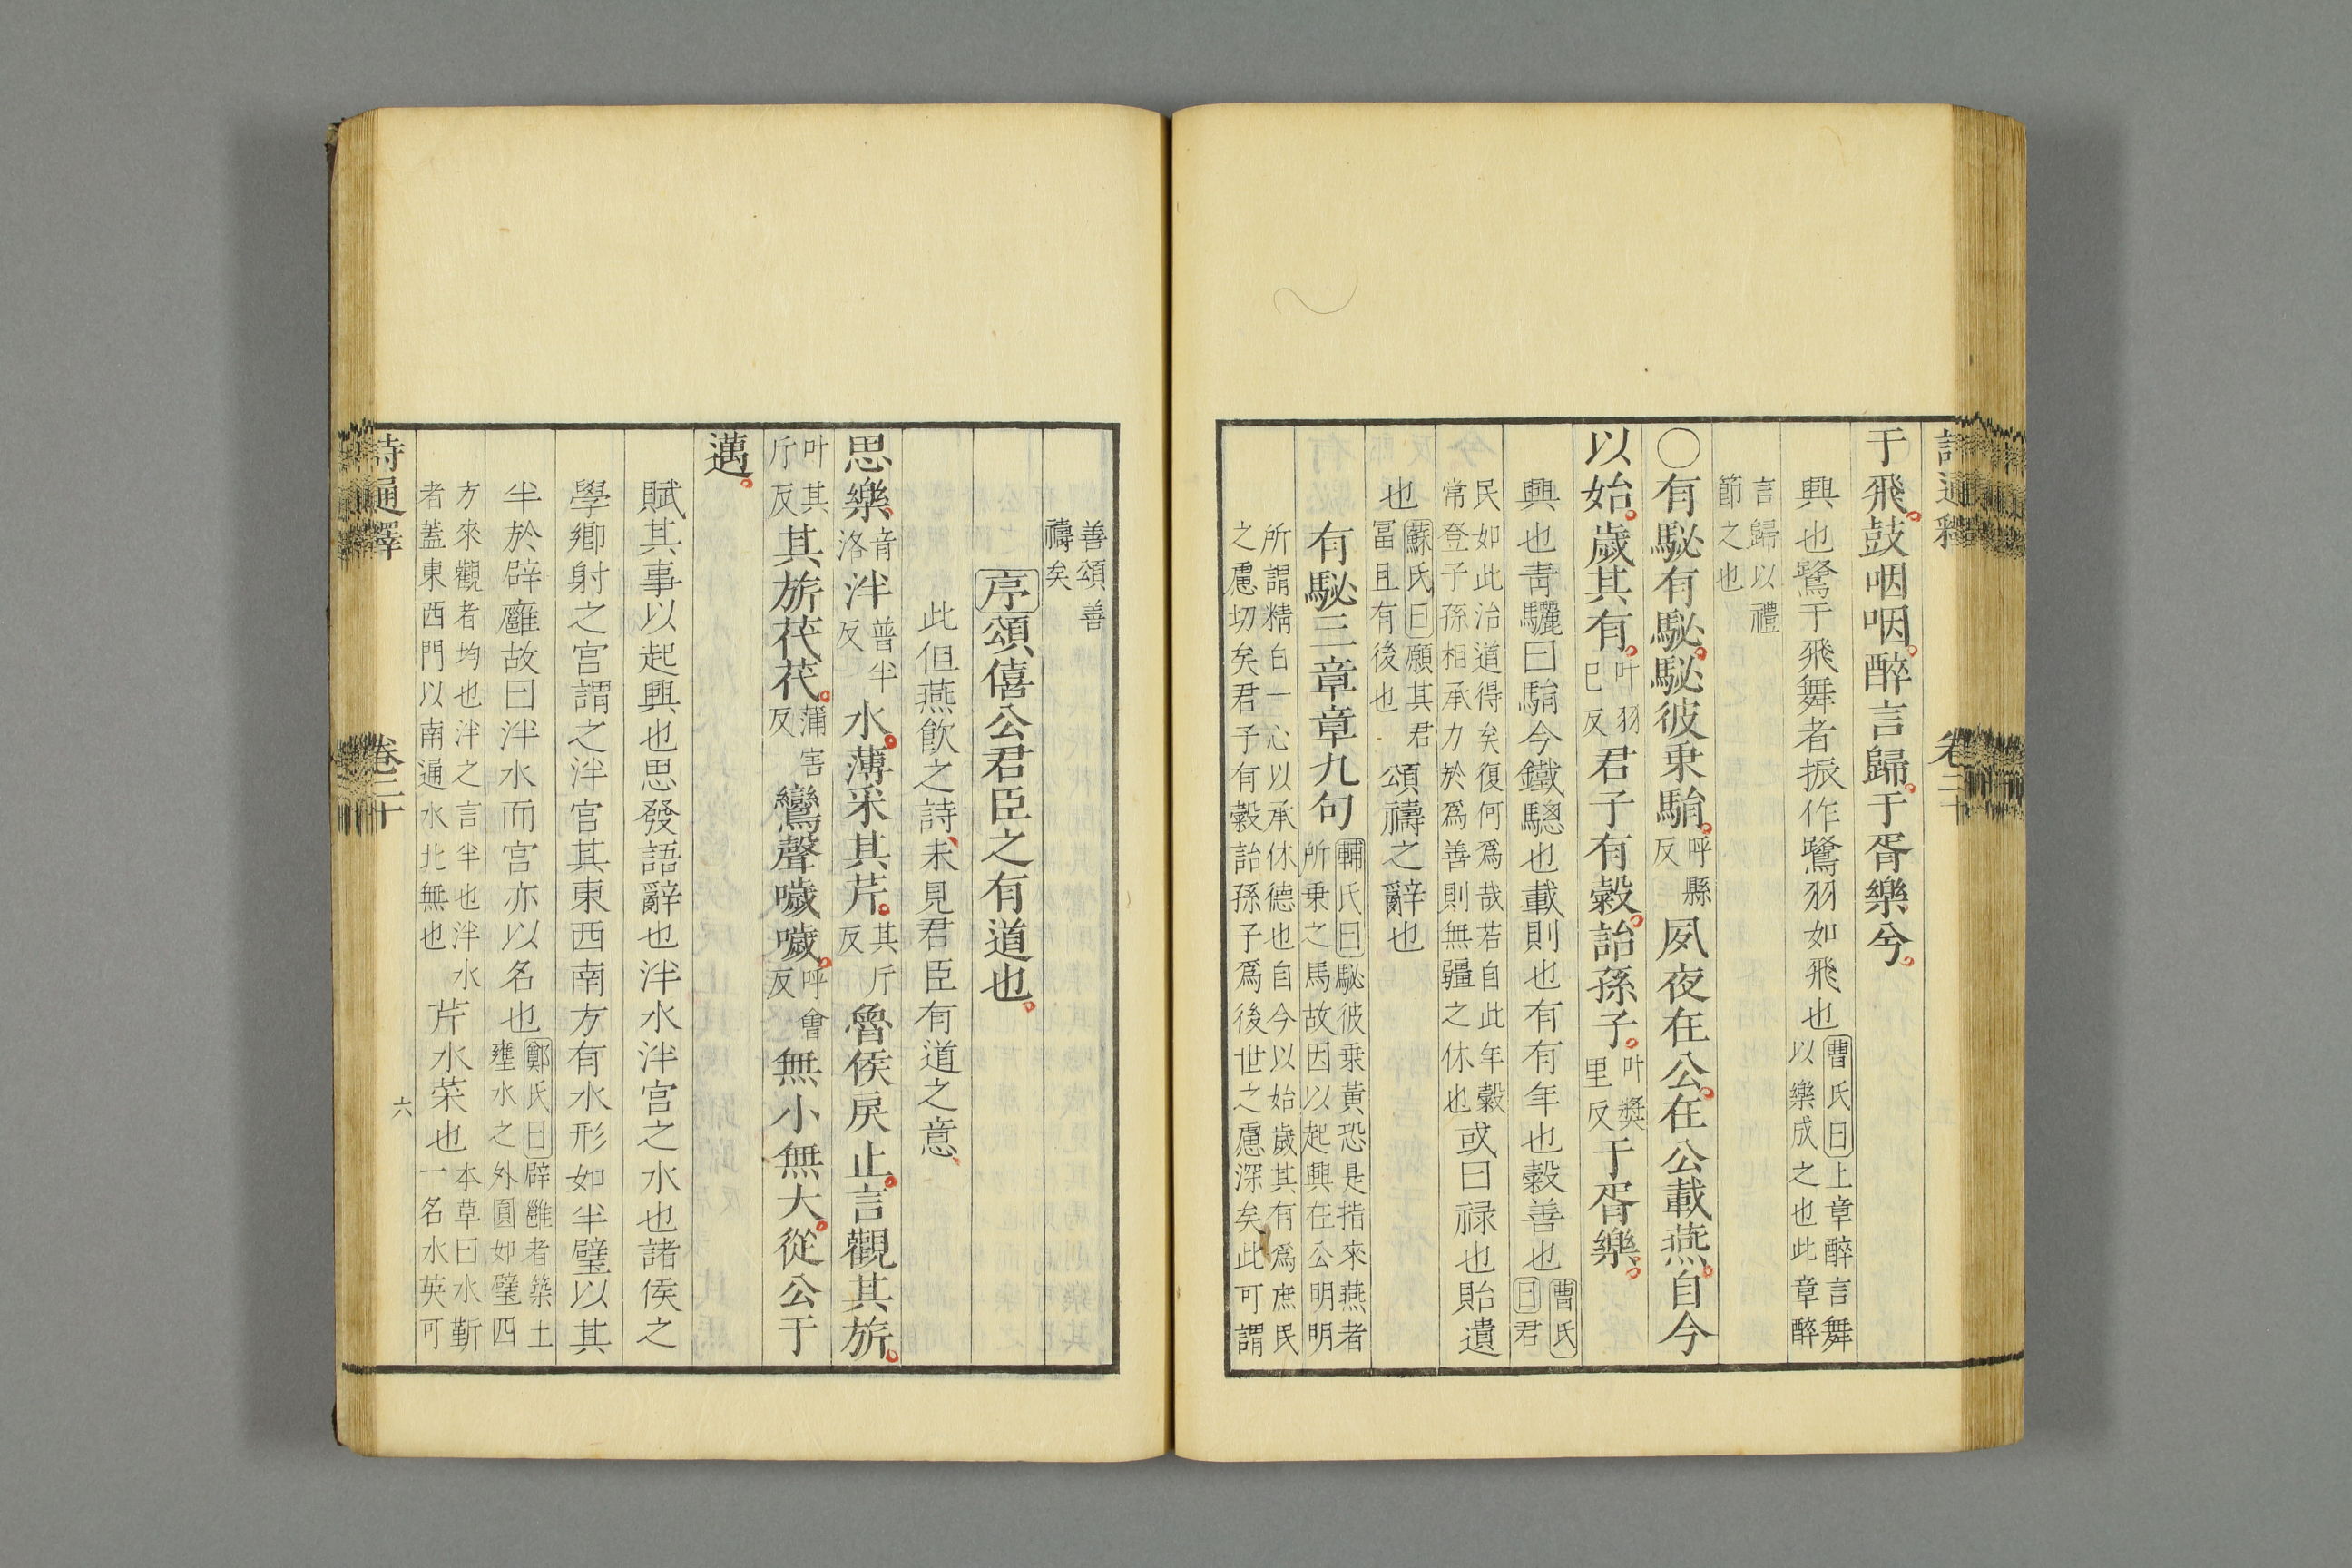 詩通釋 卷二十
于飛鼓咽咽醉言歸于胥樂兮
興也鷺于飛舞者振作鷺羽如飛也曹氏曰上章醉言舞以樂成之也此章醉
言歸以禮節之也
〇有駜有駜駜彼乗駽呼縣反夙夜在公在公載燕自今
以始歲其有叶羽已反君子有穀詒孫子叶奬里反于胥樂
興也靑驪曰駽今鐵驄也載則也有有年也穀善也曹氏曰君
民如此治道得矣復何爲哉若自此年穀常登子孫相承力於爲善則無疆之休也或曰禄也貽遺
也蘇氏曰願其君冨且有後也頌禱之辭也
有駜三章章九句輔氏曰駜彼乗黃恐是指來燕者所乗之馬故因以起興在公明明
所謂精白一心以承休德也自今以始歲其有爲庶民之慮切矣君子有穀詒孫子爲後世之慮深矣此可謂
善頌善禱矣
序頌僖公君臣之有道也
此但燕飮之詩未見君臣有道之意
思樂音洛泮普半反水薄采其芹其斤反魯侯戾止言觀其旂
叶其斤反其旂茷茷蒲害反鸞聲噦噦呼會反無小無大從公于
邁
賦其事以起興也思發語辭也泮水泮宫之水也諸侯之
學鄉射之宫謂之泮宫其東西南方有水形如半璧以其
半於辟廱故曰泮水而宫亦以名也鄭氏曰辟雝者築土壅水之外圓如璧四
方來觀者均也泮之言半也泮水者蓋東西門以南通水北無也芹水菜也本草曰水靳一名水英可
詩通釋 卷二十 六